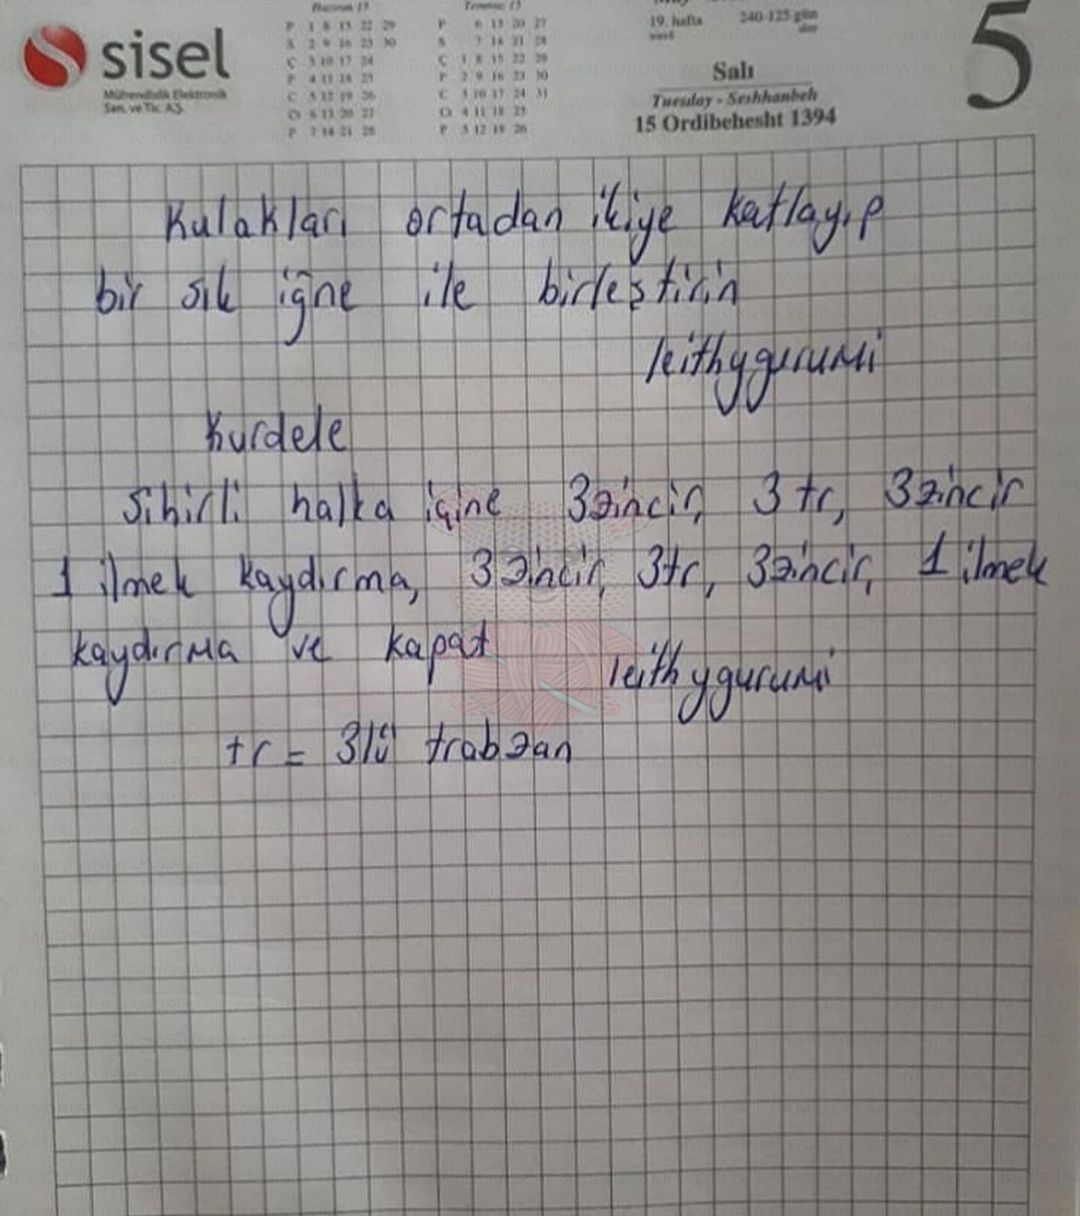 sisel
Mühendislik Elektronik
San. ve Tic. A.Ş.
Haziran 15
P 1 8 15 22 29
S 2 9 16 23 30
Ç 3 10 17 24
P 4 11 18 25
C 5 12 19 26
C 6 13 20 27
P 7 14 21 28
Temmuz 15
P 6 13 20 27
S 7 14 21 28
Ç 1 8 15 22 29
P 2 9 16 23 30
C 3 10 17 24 31
C 4 11 18 25
P 5 12 19 26
19. hafta
week
240-125 gün
day
Salı
Tuesday - Seshhanbeh
15 Ordibehesht 1394
5
Kulakları ortadan ikiye katlayıp
bir sık iğne ile birleştirin
leithygurumi
Kurdele
Sihirli halka içine 3zincir, 3 tr, 3zincir
1 ilmek kaydırma, 3zincir, 3tr, 3zincir, 1 ilmek
kaydırma ve kapat
leithygurumi
tr = 3lü trabzan